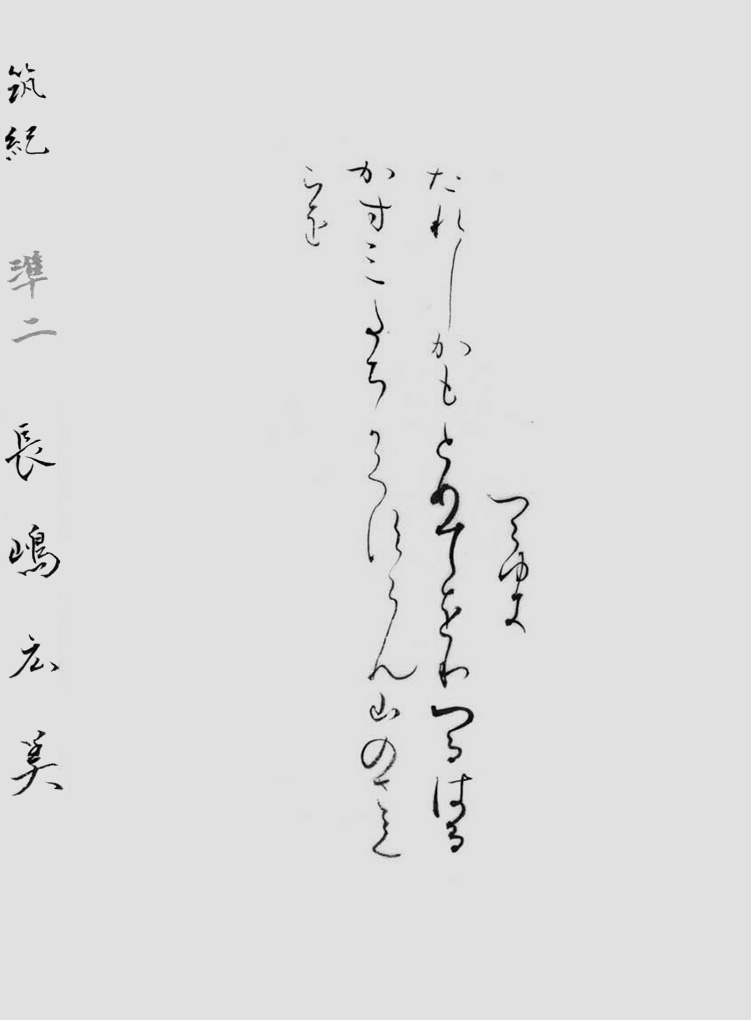 つらゆき
たれしかもとめてをりつるはる
かすみたちかくすらん山のさく
らを
筑紀 準二 長嶋 広美